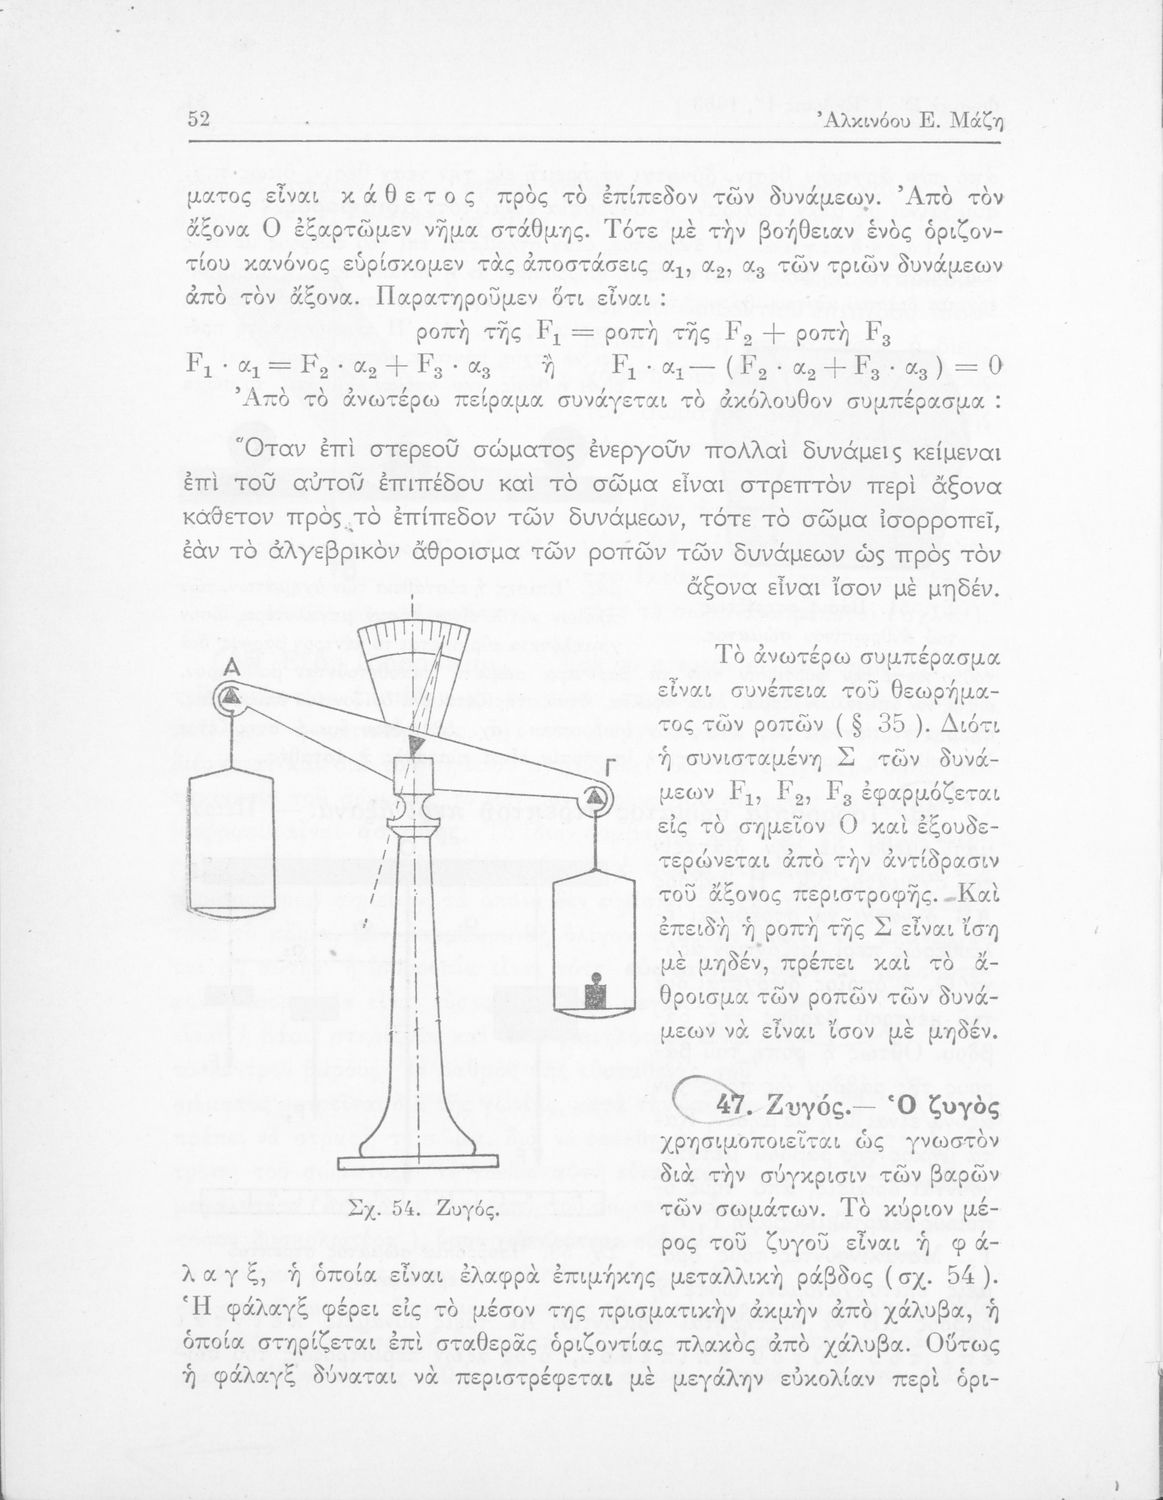 52
Ἀλκινόου Ε. Μάζη
ματος εἶναι κ ά θ ε τ ο ς πρὸς τὸ ἐπίπεδον τῶν δυνάμεων. Ἀπὸ τὸν
ἄξονα Ο ἐξαρτῶμεν νῆμα στάθμης. Τότε μὲ τὴν βοήθειαν ἑνὸς ὁριζον-
τίου κανόνος εὑρίσκομεν τὰς ἀποστάσεις α₁, α₂, α₃ τῶν τριῶν δυνάμεων
ἀπὸ τὸν ἄξονα. Παρατηροῦμεν ὅτι εἶναι :
ροπὴ τῆς F₁ = ροπὴ τῆς F₂ + ροπὴ F₃
F₁ · α₁ = F₂ · α₂ + F₃ · α₃ ἢ F₁ · α₁ — ( F₂ · α₂ + F₃ · α₃ ) = 0
Ἀπὸ τὸ ἀνωτέρω πείραμα συνάγεται τὸ ἀκόλουθον συμπέρασμα :
Ὅταν ἐπὶ στερεοῦ σώματος ἐνεργοῦν πολλαὶ δυνάμεις κείμεναι
ἐπὶ τοῦ αὐτοῦ ἐπιπέδου καὶ τὸ σῶμα εἶναι στρεπτὸν περὶ ἄξονα
κάθετον πρὸς τὸ ἐπίπεδον τῶν δυνάμεων, τότε τὸ σῶμα ἰσορροπεῖ,
ἐὰν τὸ ἀλγεβρικὸν ἄθροισμα τῶν ροπῶν τῶν δυνάμεων ὡς πρὸς τὸν
ἄξονα εἶναι ἴσον μὲ μηδέν.
Α
Γ
Σχ. 54. Ζυγός.
Τὸ ἀνωτέρω συμπέρασμα
εἶναι συνέπεια τοῦ θεωρήμα-
τος τῶν ροπῶν ( § 35 ). Διότι
ἡ συνισταμένη Σ τῶν δυνά-
μεων F₁, F₂, F₃ ἐφαρμόζεται
εἰς τὸ σημεῖον Ο καὶ ἐξουδε-
τερώνεται ἀπὸ τὴν ἀντίδρασιν
τοῦ ἄξονος περιστροφῆς. Καὶ
ἐπειδὴ ἡ ροπὴ τῆς Σ εἶναι ἴση
μὲ μηδέν, πρέπει καὶ τὸ ἄ-
θροισμα τῶν ροπῶν τῶν δυνά-
μεων νὰ εἶναι ἴσον μὲ μηδέν.
47. Ζυγός.— Ὁ ζυγὸς
χρησιμοποιεῖται ὡς γνωστὸν
διὰ τὴν σύγκρισιν τῶν βαρῶν
τῶν σωμάτων. Τὸ κύριον μέ-
ρος τοῦ ζυγοῦ εἶναι ἡ φ ά-
λ α γ ξ, ἡ ὁποία εἶναι ἐλαφρὰ ἐπιμήκης μεταλλικὴ ράβδος ( σχ. 54 ).
Ἡ φάλαγξ φέρει εἰς τὸ μέσον της πρισματικὴν ἀκμὴν ἀπὸ χάλυβα, ἡ
ὁποία στηρίζεται ἐπὶ σταθερᾶς ὁριζοντίας πλακὸς ἀπὸ χάλυβα. Οὕτως
ἡ φάλαγξ δύναται νὰ περιστρέφεται μὲ μεγάλην εὐκολίαν περὶ ὁρι-